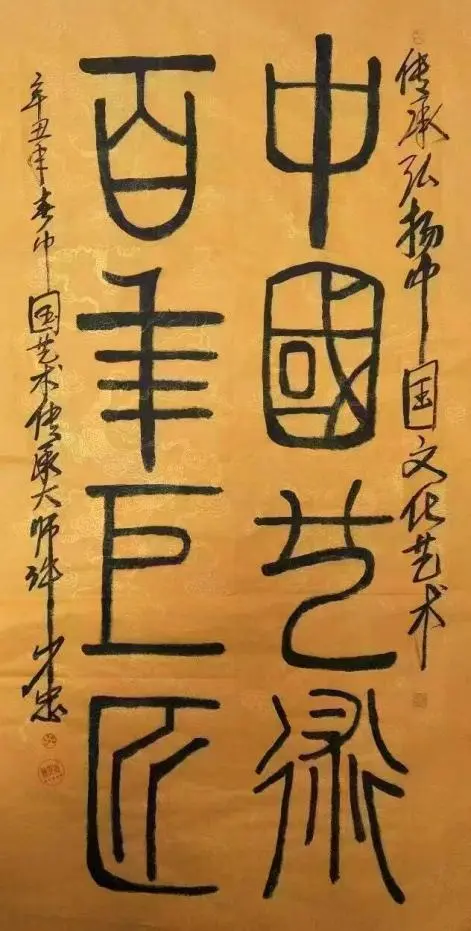 传承弘扬中国文化艺术
中國艺術
百年巨匠
辛丑年春中国艺术传承大师许